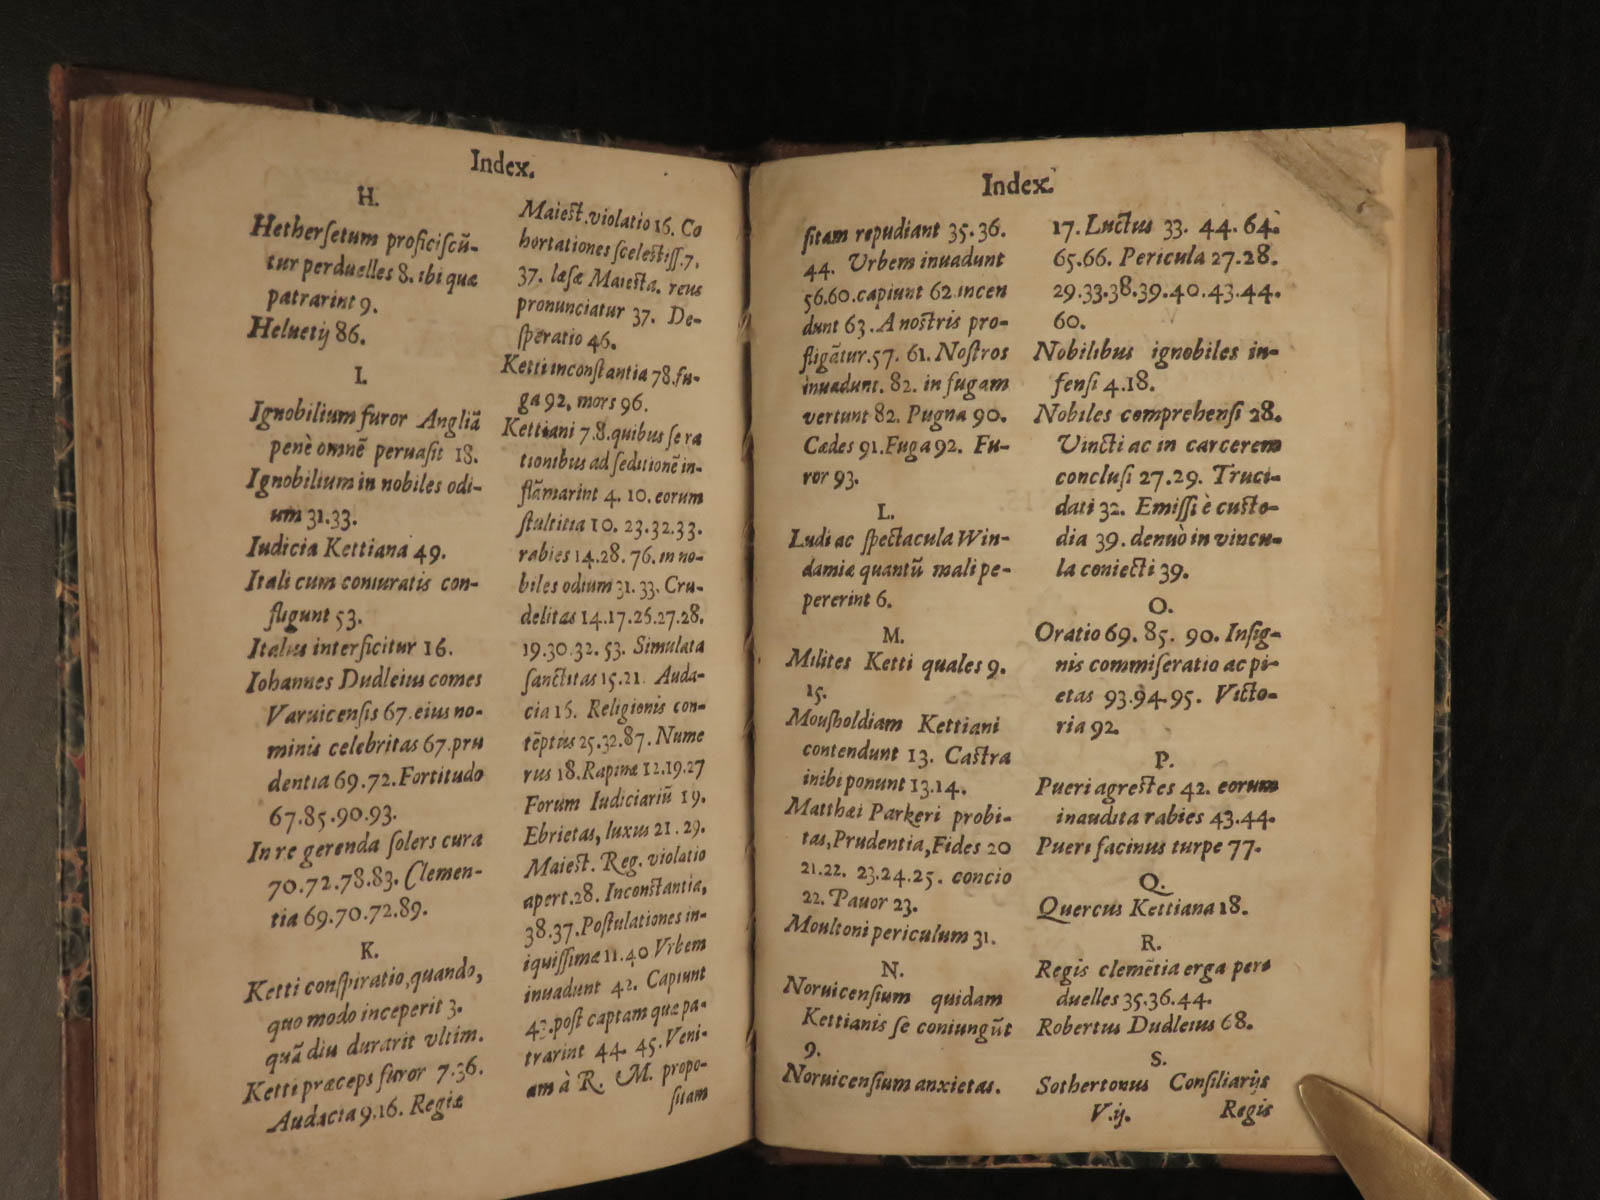 Index.
H.
Hetherſetum proficiſcũ-
tur perduelles 8. ibi quæ
patrarint 9.
Heluetij 86.
I.
Ignobilium furor Angliã
penè omnẽ peruaſit 18.
Ignobilium in nobiles odi-
um 31.33.
Iudicia Kettiana 49.
Itali cum coniuratis con-
fligunt 53.
Italus interficitur 16.
Iohannes Dudleius comes
Varuicenſis 67. eius no-
minis celebritas 67. pru
dentia 69.72. Fortitudo
67.85.90.93.
In re gerenda ſolers cura
70.72.78.83. Clemen-
tia 69.70.72.89.
K.
Ketti conſpiratio, quando,
quo modo inceperit 3.
quã diu durarit vltim.
Ketti præceps furor 7.36.
Audacia 9.16. Regiæ
Maieſt. violatio 16. Co
hortationes ſceleſtiſſ. 7.
37. læſæ Maieſta. reus
pronunciatur 37. De-
ſperatio 46.
Ketti inconſtantia 78. fu-
ga 92, mors 96.
Kettiani 7.8. quibus ſe ra
tionibus ad ſeditionẽ in-
flãmarint 4. 10. eorum
ſtultitia 10. 23.32.33.
rabies 14.28. 76. in no-
biles odium 31. 33. Cru-
delitas 14.17.26.27.28.
19.30.32. 53. Simulata
ſanctitas 15.21. Auda-
cia 16. Religionis con-
tẽptus 25.32.87. Nume
rus 18. Rapinæ 12.19.27
Forum Iudiciariũ 19.
Ebrietas, luxus 21.29.
Maieſt. Reg. violatio
apert. 28. Inconſtantia,
38.37. Poſtulationes in-
iquiſſimæ 11.40 Vrbem
inuadunt 42. Capiunt
43. poſt captam quæ pa-
trarint 44. 45. Veni-
am à R. M. propo-
ſitam
Index.
ſitam repudiant 35.36.
44. Vrbem inuadunt
56.60. capiunt 62. incen
dunt 63. A noſtris pro-
fligãtur. 57. 61. Noſtros
inuadunt. 82. in fugam
vertunt 82. Pugna 90.
Cædes 91. Fuga 92. Fu-
ror 93.
L.
Ludi ac ſpectacula Win-
damiæ quantũ mali pe-
pererint 6.
M.
Milites Ketti quales 9.
15.
Mouſholdiam Kettiani
contendunt 13. Caſtra
inibi ponunt 13.14.
Matthæi Parkeri probi-
tas, Prudentia, Fides 20
21.22. 23.24.25. concio
22. Pauor 23.
Moultoni periculum 31.
N.
Noruicenſium quidam
Kettianis ſe coniungũt
9.
Noruicenſium anxietas.
17. Luctus 33. 44. 64.
65.66. Pericula 27.28.
29.33.38.39.40.43.44.
60.
Nobilibus ignobiles in-
fenſi 4.18.
Nobiles comprehenſi 28.
Vincti ac in carcerem
concluſi 27.29. Truci-
dati 32. Emiſſi è cuſto-
dia 39. denuò in vincu-
la coniecti 39.
O.
Oratio 69. 85. 90. Inſig-
nis commiſeratio ac pi-
etas 93.94.95. Victo-
ria 92.
P.
Pueri agreſtes 42. eorum
inaudita rabies 43.44.
Pueri facinus turpe 77.
Q.
Quercus Kettiana 18.
R.
Regis clemẽtia erga per-
duelles 35.36.44.
Robertus Dudleius 68.
S.
Sothertonus Conſiliarijs
V.ij.
Regis